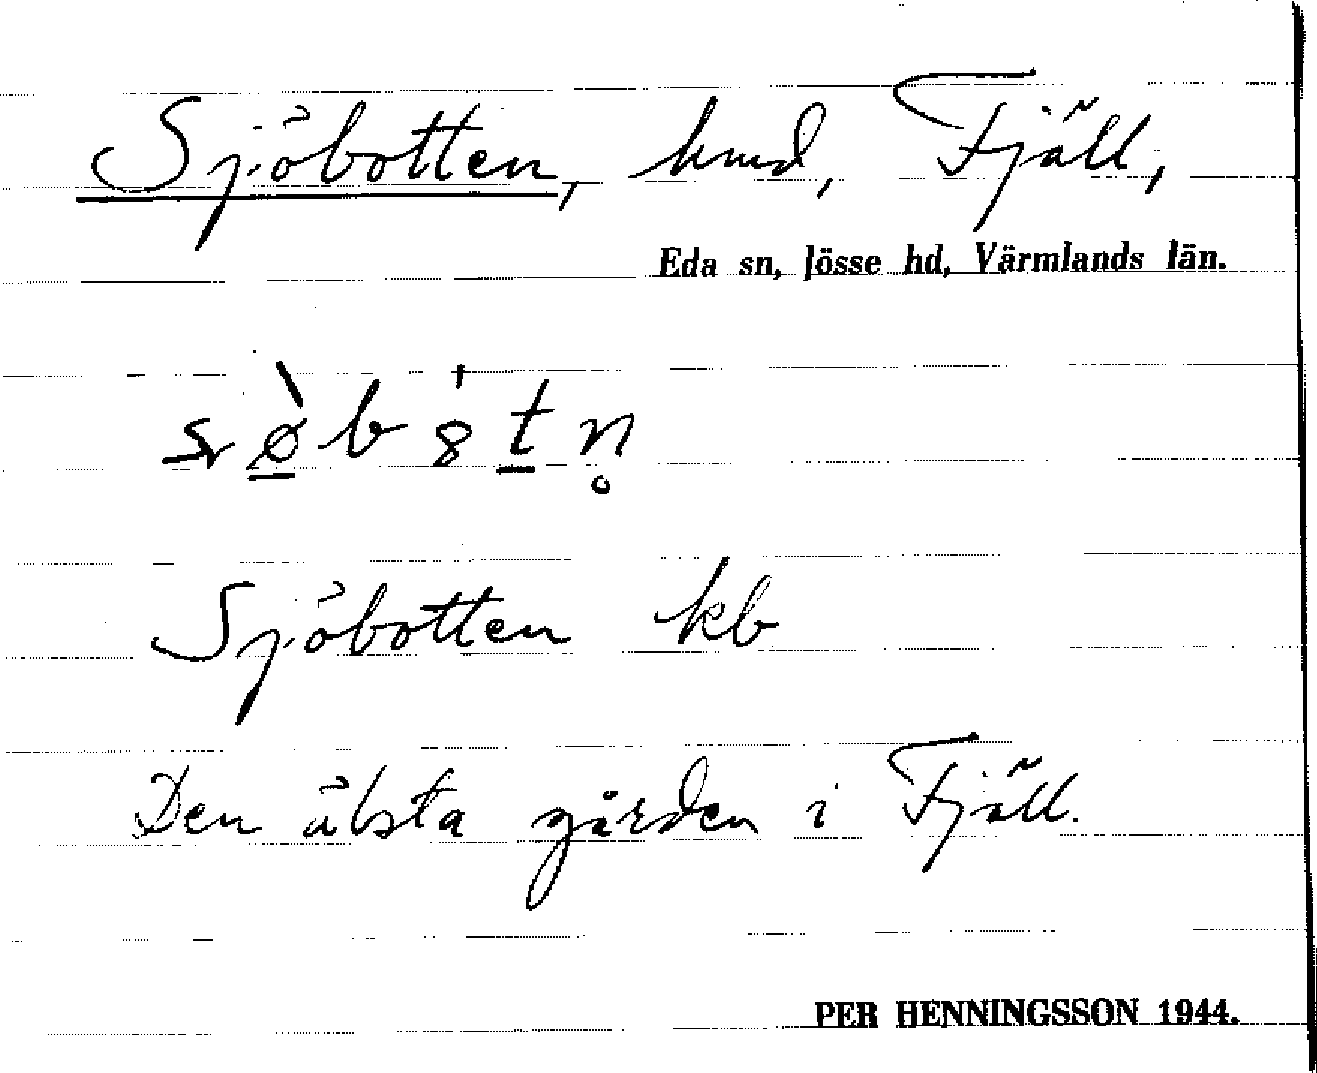 Sjöbotten, hmd, Fjäll,
Eda sn, Jösse hd, Värmlands län.
Sjöbotten kb
Den älsta gården i Fjäll.
PER HENNINGSSON 1944.